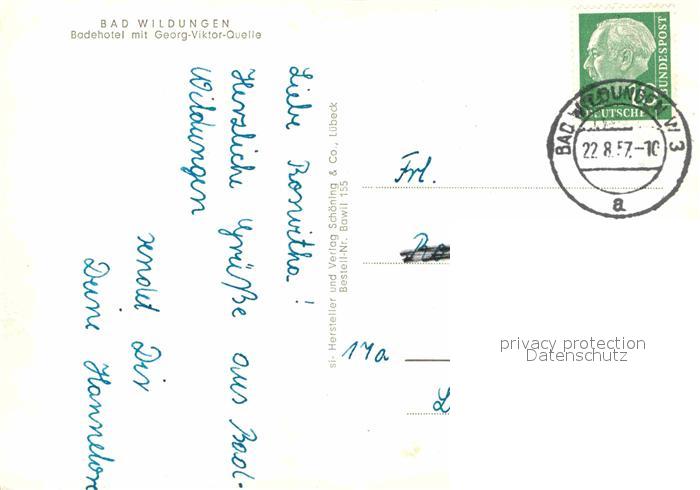 BAD WILDUNGEN
Badehotel mit Georg-Viktor-Quelle
Liebe Roswitha!
Herzliche Grüße aus Bad-
Wildungen
sendet Dir
Deine Hannelore
si- Hersteller und Verlag Schöning & Co., Lübeck
Bestell-Nr. Bawil 155
DEUTSCHE BUNDESPOST
BAD WILDUNGEN W 3
22.8.57.-10
a
Frl.
17a
L
privacy protection
Datenschutz